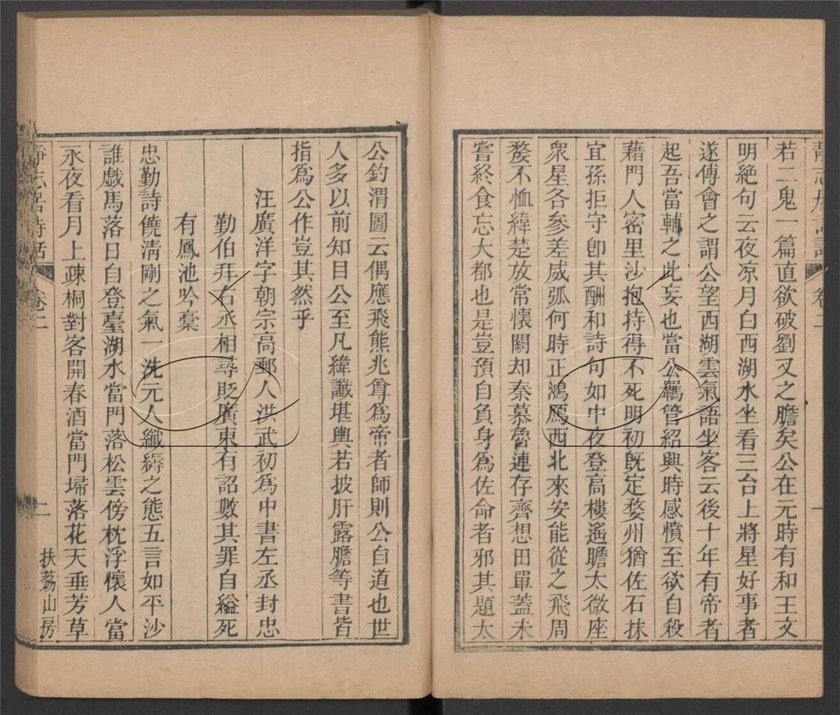 靜志居詩話 卷二 一
若二鬼一篇直欲破劉叉之膽矣公在元時有和王文
明絕句云夜凉月白西湖水坐看三台上將星好事者
遂傅會之謂公望西湖雲氣語坐客云後十年有帝者
起吾當輔之此妄也當公羈管紹興時感憤至欲自殺
藉門人密里沙抱持得不死明初旣定婺州猶佐石抹
宜孫拒守卽其酬和詩句如中夜登高樓遙瞻太微座
衆星各參差威弧何時正鴻鴈西北來安能從之飛周
嫠不恤緯楚放常懷闕却秦慕魯連存齊想田單蓋未
嘗終食忘大都也是豈預自負身爲佐命者邪其題太
公釣渭圖云偶應飛熊兆尊爲帝者師則公自道也世
人多以前知目公至凡緯讖堪輿若披肝露膽等書皆
指爲公作豈其然乎
汪廣洋字朝宗高郵人洪武初爲中書左丞封忠
勤伯拜右丞相尋貶廣東有詔數其罪自縊死
有鳳池吟稾
忠勤詩饒淸剛之氣一洗元人纖縟之態五言如平沙
誰戲馬落日自登臺湖水當門落松雲傍枕浮懷人當
永夜看月上疎桐對客開春酒當門埽落花天垂芳草
靜志居詩話 卷二 二 扶荔山房